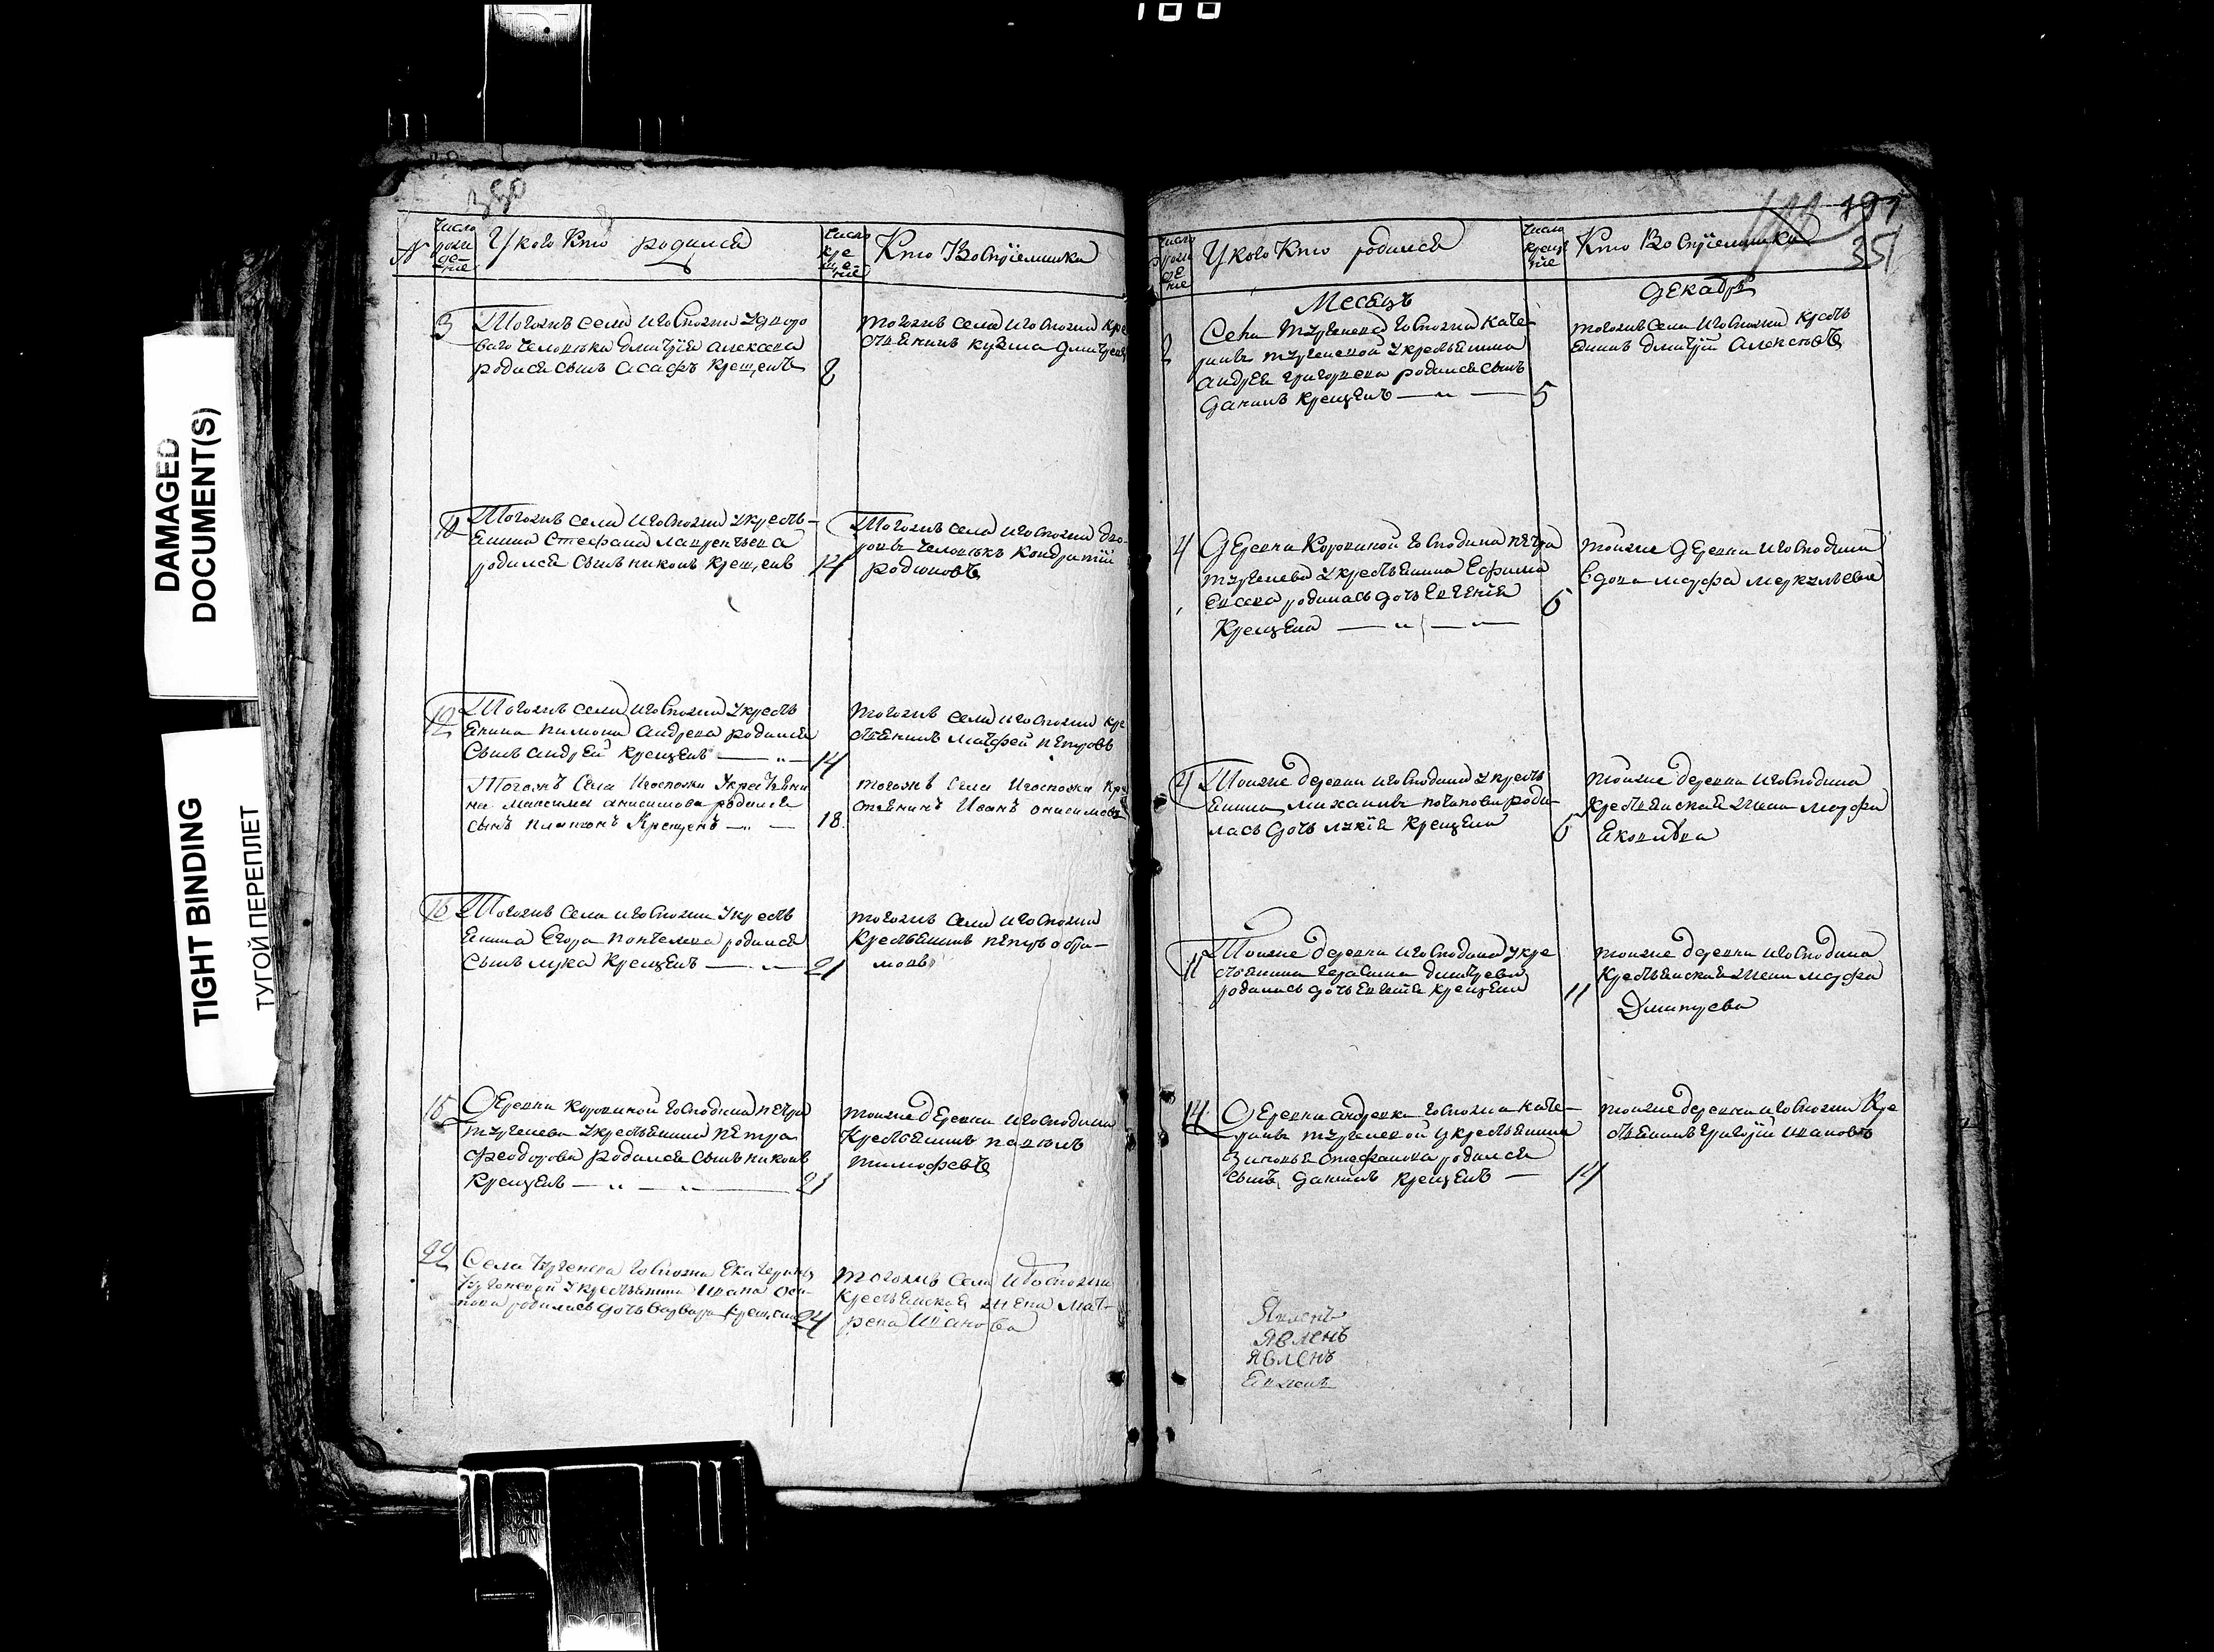 188
DAMAGED
DOCUMENT(S)
TIGHT BINDING
ТУГОЙ ПЕРЕПЛЕТ
350
№
число
рожде-
ние
У кого Кто родился
число
кре
ще-
ние
Кто Восприемники
3
Тогожъ села игоспожи удворо
ваго человека дмитрія алексеева
родился сынъ асафъ крещенъ
8
тогожъ села игоспожи кре
стьянинъ кузма дмитреевъ
Тогожъ села игоспожи укресть-
янина Стефана лаврентьева
родился сынъ никонъ крещенъ
14
Тогожъ села игоспожи дво-
ровы человекъ кондратій
родионовъ
12
Тогожъ села игоспожи укресть
янина пимона андреева родился
сынъ андрей крещенъ
14
тогожъ села игоспожи кре
стьянинъ матфей петровъ
Тогожъ Села Игоспожи Укрестьяни
на максима анисимова родился
сынъ платонъ Крещенъ
18
тогожъ Села Игоспожи Кре
стьянинъ Иванъ онисимовъ
16
Тогожъ села игоспожи укресть
янина Егора родился
сынъ лука крещенъ
21
тогожъ села игоспожи
крестьянинъ петръ абра-
мовъ
Деревни коровиной господина петра
тургенева укрестьянина петра
феодорова родился сынъ никонъ
крещенъ
21
тоижъ деревни игосподина
крестьянинъ павелъ
тимофеевъ
22
Села тургенева госпожи Екатерины
тургеневой укрестьянина Ивана оси-
пова родилась дочь варвара крещена
24
тогожъ села игоспожи
крестьянская жена мат-
рена Иванова
191
351
число
рож
де
ние
У кого Кто родился
число
креще
ние
Кто Восприемники
Месяцъ
декабрь
2
Села тургенева госпожи кате-
рины тургеневой укрестьянина
андрея григорьева родился сынъ
данилъ крещенъ
5
тогожъ села игоспожи кресть
янинъ дмитрій алексеевъ
4
Деревни Коровиной господина петра
тургенева укрестьянина Ефима
родилась дочь Евгенія
Крещена
6
тоиже деревни игосподина
вдова марфа меркульева
4
Тоиже деревни игосподина укресть
янина михаилы потапова роди-
лась дочь лукія крещена
6
тоиже деревни игосподина
крестьянская жена марфа
яковлева
11
Тоиже деревни игосподина укре
стьянина герасима дмитрева
родилась дочь Евгенія крещена
11
тоиже деревни игосподина
крестьянская жена марфа
Дмитрева
14
Деревни андреевки госпожи кате-
рины тургеневой укрестьянина
зиновья стефанова родился
сынъ данилъ крещенъ
14
тоиже деревни игоспожи кре
стьянинъ григорій ивановъ
Явленъ
Явленъ
явленъ